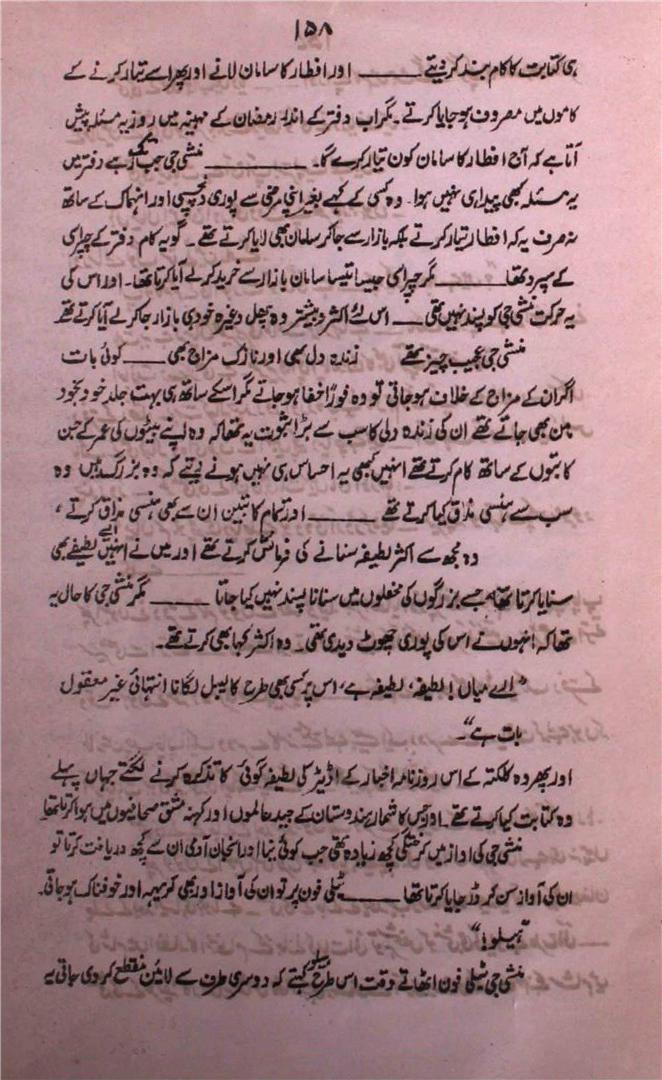 ۱۵۸
ہی کتابت کا کام بند کر دیتے ——— اور افطار کا سامان لانے اور پھر اسے تیار کرنے کے
کاموں میں مصروف ہو جایا کرتے۔ مگر اب دفتر کے اندر رمضان کے مہینہ میں روز یہ مسئلہ پیش
آتا ہے کہ آج افطار کا سامان کون تیار کرے گا۔ ——— منشی جی جب تک رہے دفتر میں
یہ مسئلہ کبھی پیدا ہی نہیں ہوا۔ وہ کسی کے کہے بغیر اپنی مرضی سے پوری دلچسپی اور انہماک کے ساتھ
نہ صرف یہ کہ افطار تیار کرتے بلکہ بازار سے جا کر سامان بھی لایا کرتے تھے۔ گو یہ کام دفتر کے چپراسی
کے سپرد تھا ——— مگر چپراسی جیسا تیسا سامان بازار سے خرید کر لے آیا کرتا تھا۔ اور اس کی
یہ حرکت منشی جی کو پسند نہیں تھی —— اس لئے اکثر و بیشتر وہ پھل وغیرہ خود ہی بازار جا کر لے آیا کرتے تھے
منشی جی عجیب چیز تھے زندہ دل بھی اور نازک مزاج بھی —— کوئی بات
اگر ان کے مزاج کے خلاف ہو جاتی تو وہ فوراً خفا ہو جاتے مگر اسکے ساتھ ہی بہت جلد خود بخود
من بھی جاتے تھے ان کی زندہ دلی کا سب سے بڑا ثبوت یہ تھا کہ وہ اپنے بیٹوں کی عمر کے جن
کاتبوں کے ساتھ کام کرتے تھے انہیں کبھی یہ احساس ہی نہیں ہونے دیتے کہ وہ بزرگ ہیں وہ
سب سے ہنسی مذاق کیا کرتے تھے ——— اور تمام کاتبین ان سے بھی ہنسی مذاق کرتے،
وہ مجھ سے اکثر لطیفہ سنانے کی فرمائش کرتے تھے اور میں نے انہیں ایسے لطیفے بھی
سنایا کرتا تھا جسے بزرگوں کی محفلوں میں سنانا پسند نہیں کیا جاتا ——— مگر منشی جی کا حال یہ
تھا کہ انہوں نے اس کی پوری چھوٹ دیدی تھی۔ وہ اکثر کہا بھی کرتے تھے۔
"ارے میاں! لطیفہ، لطیفہ ہے، اس پر کسی بھی طرح کا لیبل لگانا انتہائی غیر معقول
بات ہے"۔
اور پھر وہ کلکتہ کے اس روزنامہ اخبار کے اڈیٹر کی لطیفہ گوئی کا تذکرہ کرنے لگتے جہاں پہلے
وہ کتابت کیا کرتے تھے۔ اور جس کا شمار ہندوستان کے جید عالموں اور کہنہ مشق صحافیوں میں ہوا کرتا تھا
منشی جی کی آواز میں کرختگی کچھ زیادہ تھی جب کوئی نیا اور انجان آدمی ان سے کچھ دریافت کرتا تو
ان کی آواز سن کر ڈر جایا کرتا تھا ——— ٹیلی فون پر تو ان کی آواز اور بھی کریہہ اور خوفناک ہو جاتی۔
"ہیلو!"
منشی جی ٹیلی فون اٹھاتے وقت اس طرح ہیلو کہتے کہ دوسری طرف سے لائین منقطع کر دی جاتی یہ